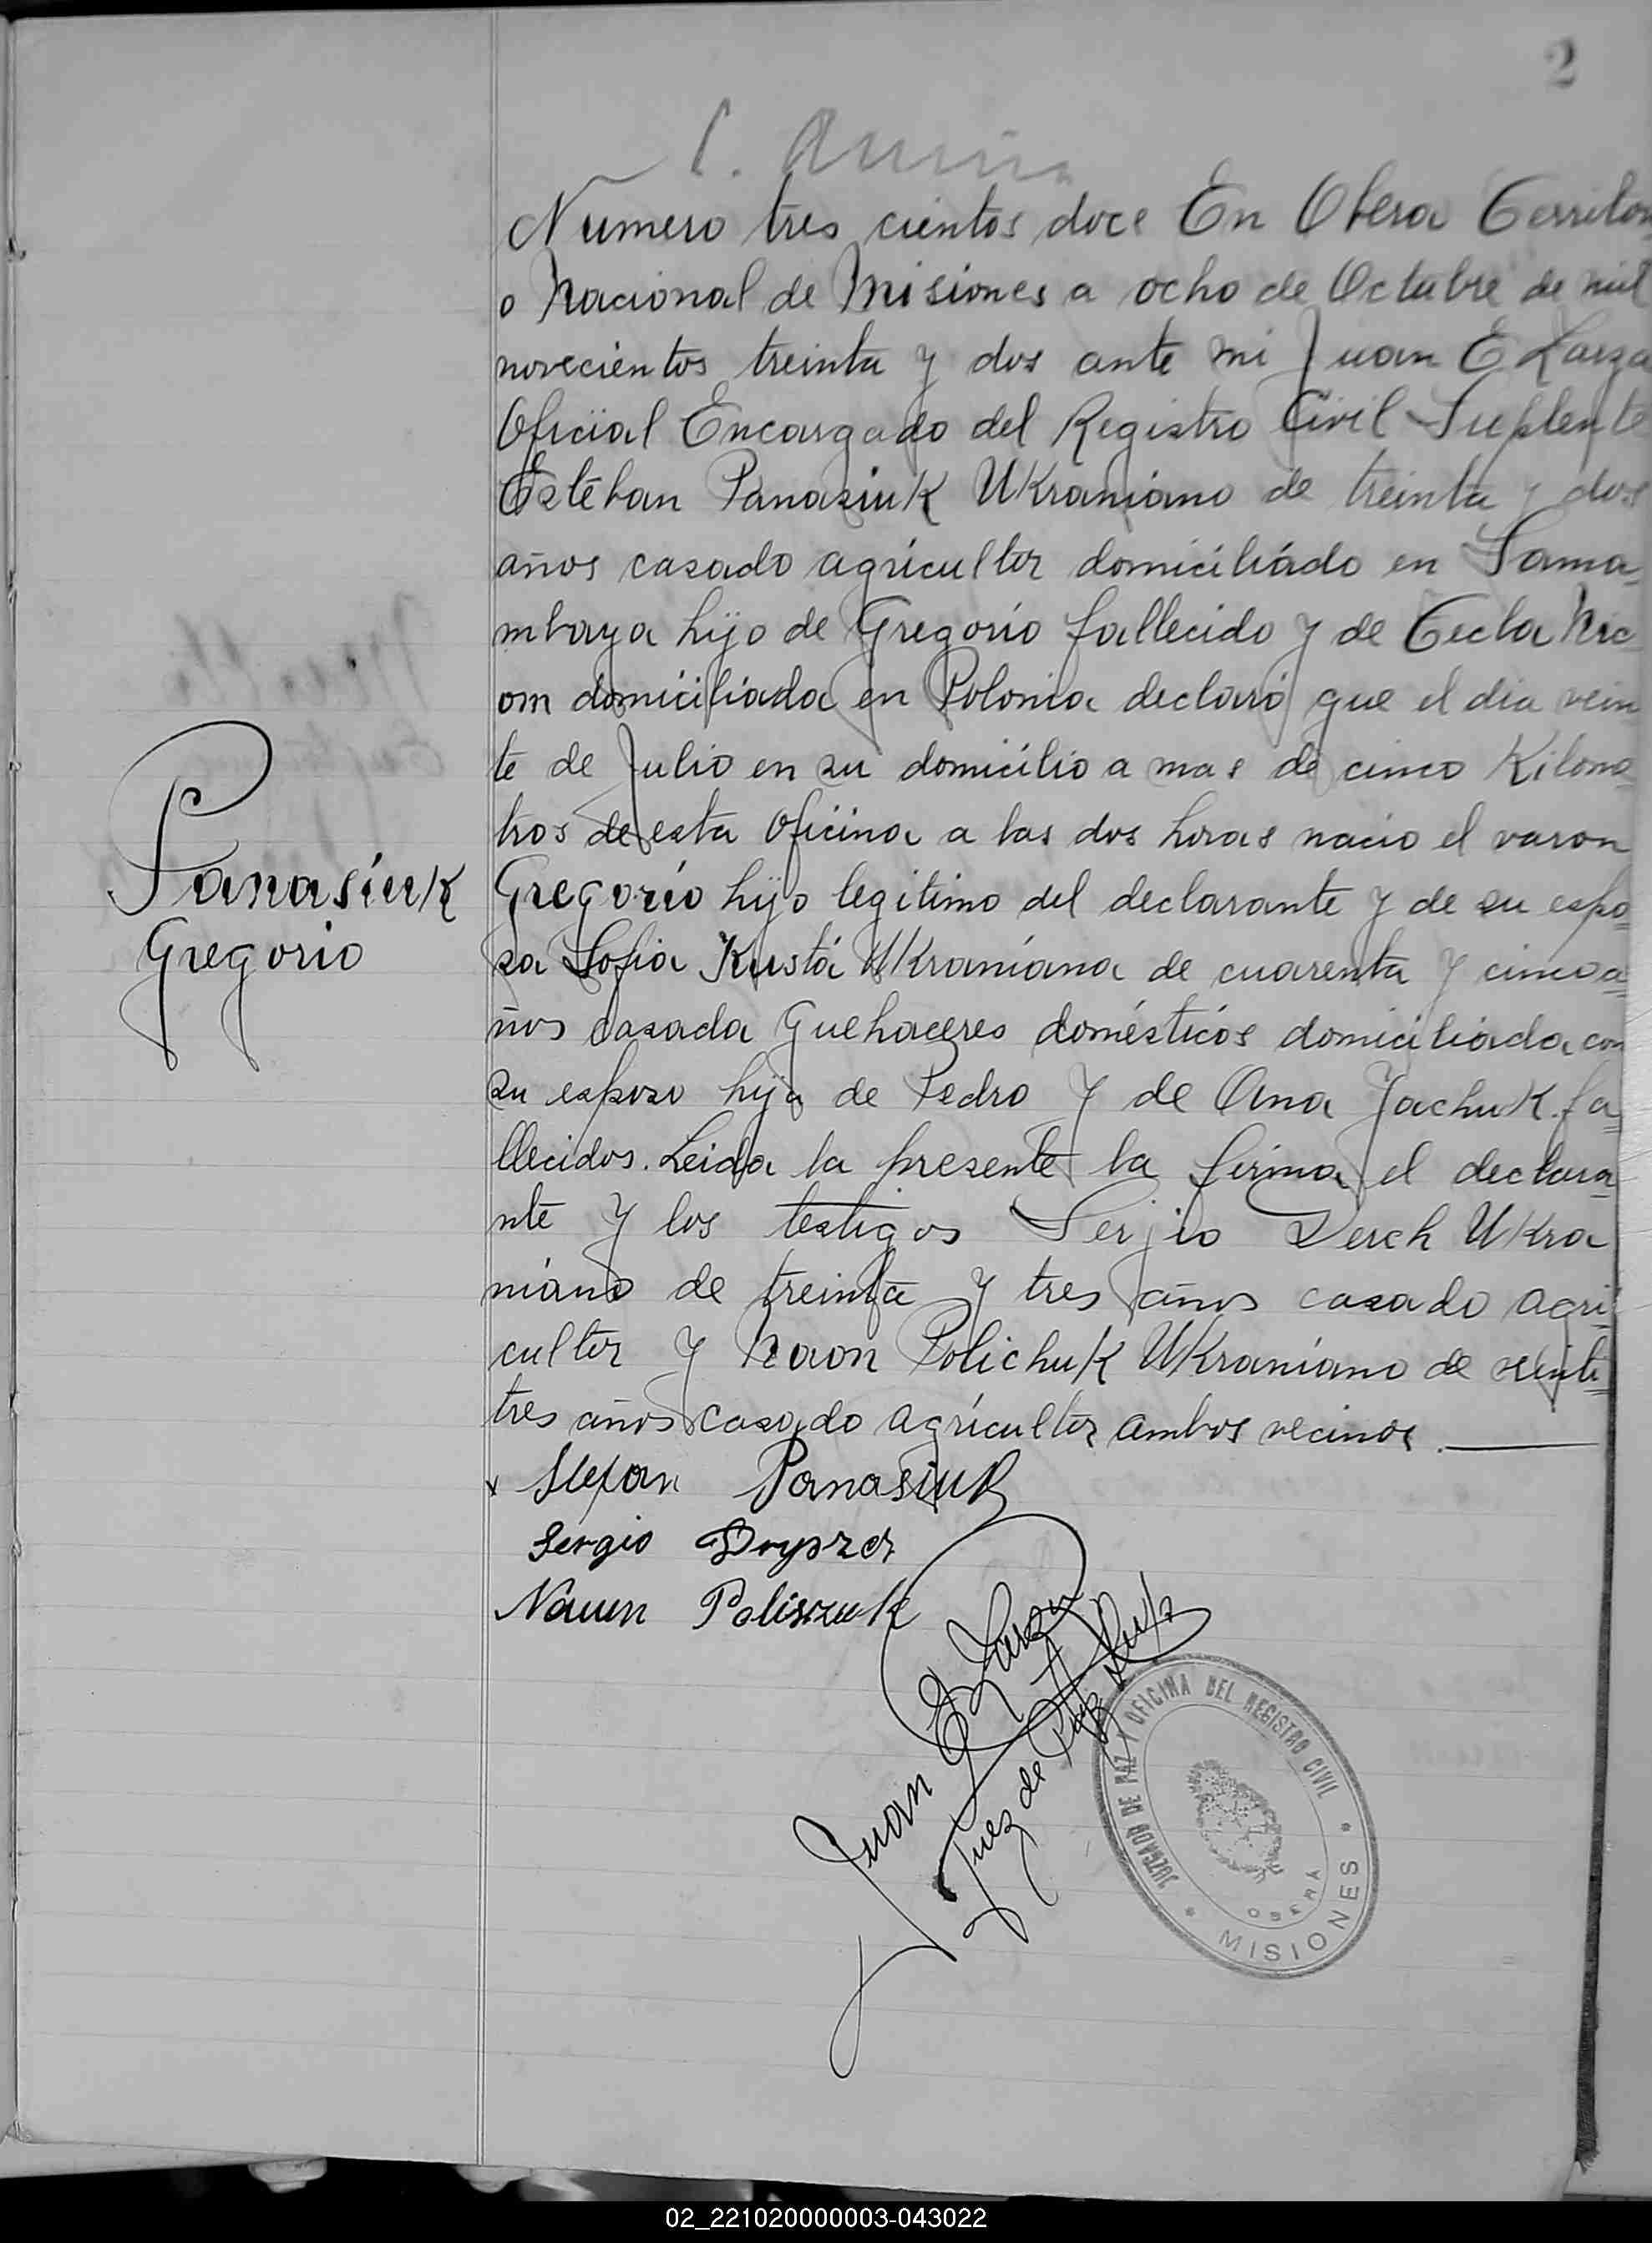 2
Numero tres cientos doce En Obera Territori
o Nacional de Misiones a ocho de Octubre de mil
novecientos treinta y dos ante mi Juan E Larza
Oficial Encargado del Registro Civil Suplente
Esteban Panasiuk Ukraniano de treinta y dos
años casado agricultor domiciliado en Sama
mbaya hijo de Gregorio fallecido y de Tecla Nic
om domiciliada en Polonia declaró que el dia vein
te de Julio en su domicilio a mas de cinco Kilome
tros de esta oficina a las dos horas nacio el varon
Gregorio hijo legitimo del declarante y de su espo
sa Sofia Kustá Ukraniana de cuarenta y cinco a
ños casada Quehaceres domésticos domiciliada con
su esposo hija de Pedro y de Ana Jachuk fa
llecidos. Leida la presente la firma el declara
nte y los testigos Serjio Derch Ukra
niano de treinta y tres años casado agri
cultor y Naon Polichuk Ukraniano de veinte
tres años casado agricultor ambos vecinos.
Panasiuk
Gregorio
x Stefan Panasiuk
Sergio
Naum Poliszuk
Juan E Larza
Juez de Paz Supte
JUZGADO DE PAZ Y OFICINA DEL REGISTRO CIVIL
OBERÁ
* MISIONES *
02_221020000003-043022